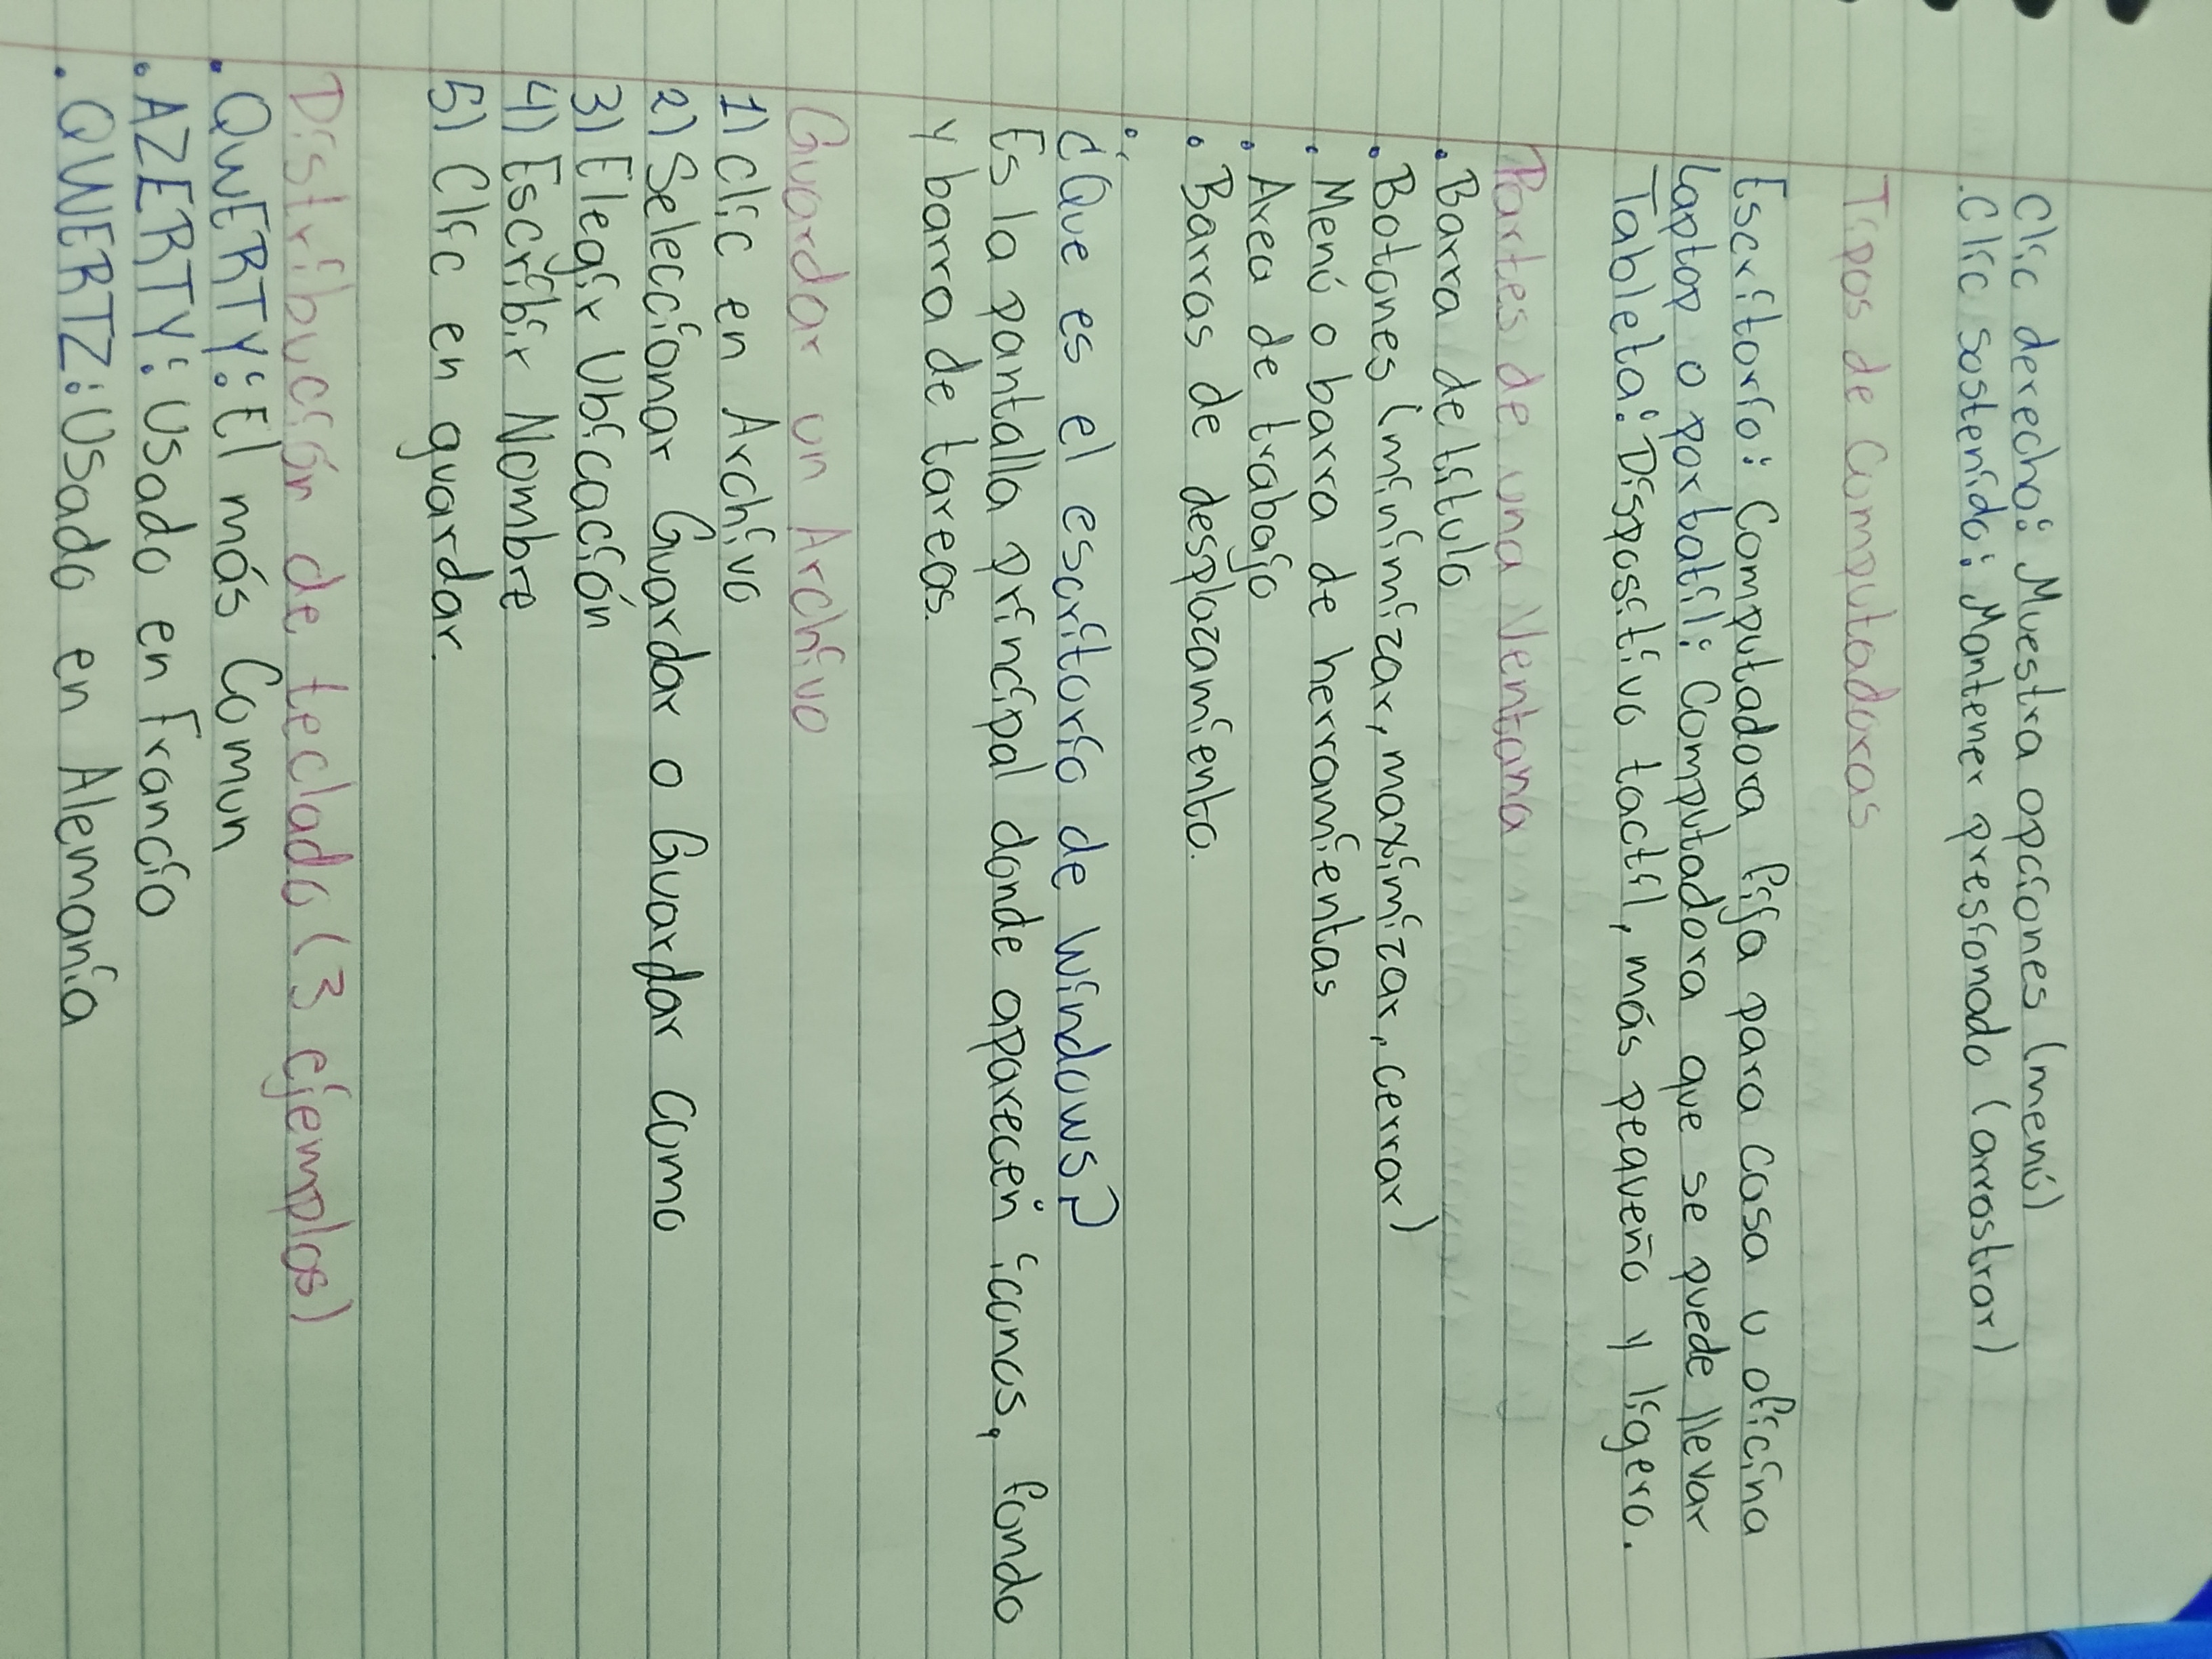 Clic derecho: Muestra opciones (menú)
.Clic sostenido: Mantener presionado (arrastrar)
Tipos de Computadoras
Escritorio: Computadora fija para casa u oficina
laptop o portatil: Computadora que se puede llevar
Tableta: Dispositivo tactil, más pequeño y ligero.
Partes de una Ventana
. Barra de titulo
. Botones (minimizar, maximizar, cerrar)
. Menú o barra de herramientas
. Area de trabajo
. Barras de desplazamiento.
¿Que es el escritorio de windows?
Es la pantalla principal donde aparecen iconos, fondo
y barra de tareas.
Guardar un Archivo
1) clic en Archivo
2) Seleccionar Guardar o Guardar como
3) Elegir Ubicación
4) Escribir Nombre
5) Clic en guardar.
Distribución de teclado (3 ejemplos)
. QWERTY: El más Comun
. AZERTY: Usado en Francia
. QWERTZ: Usado en Alemania